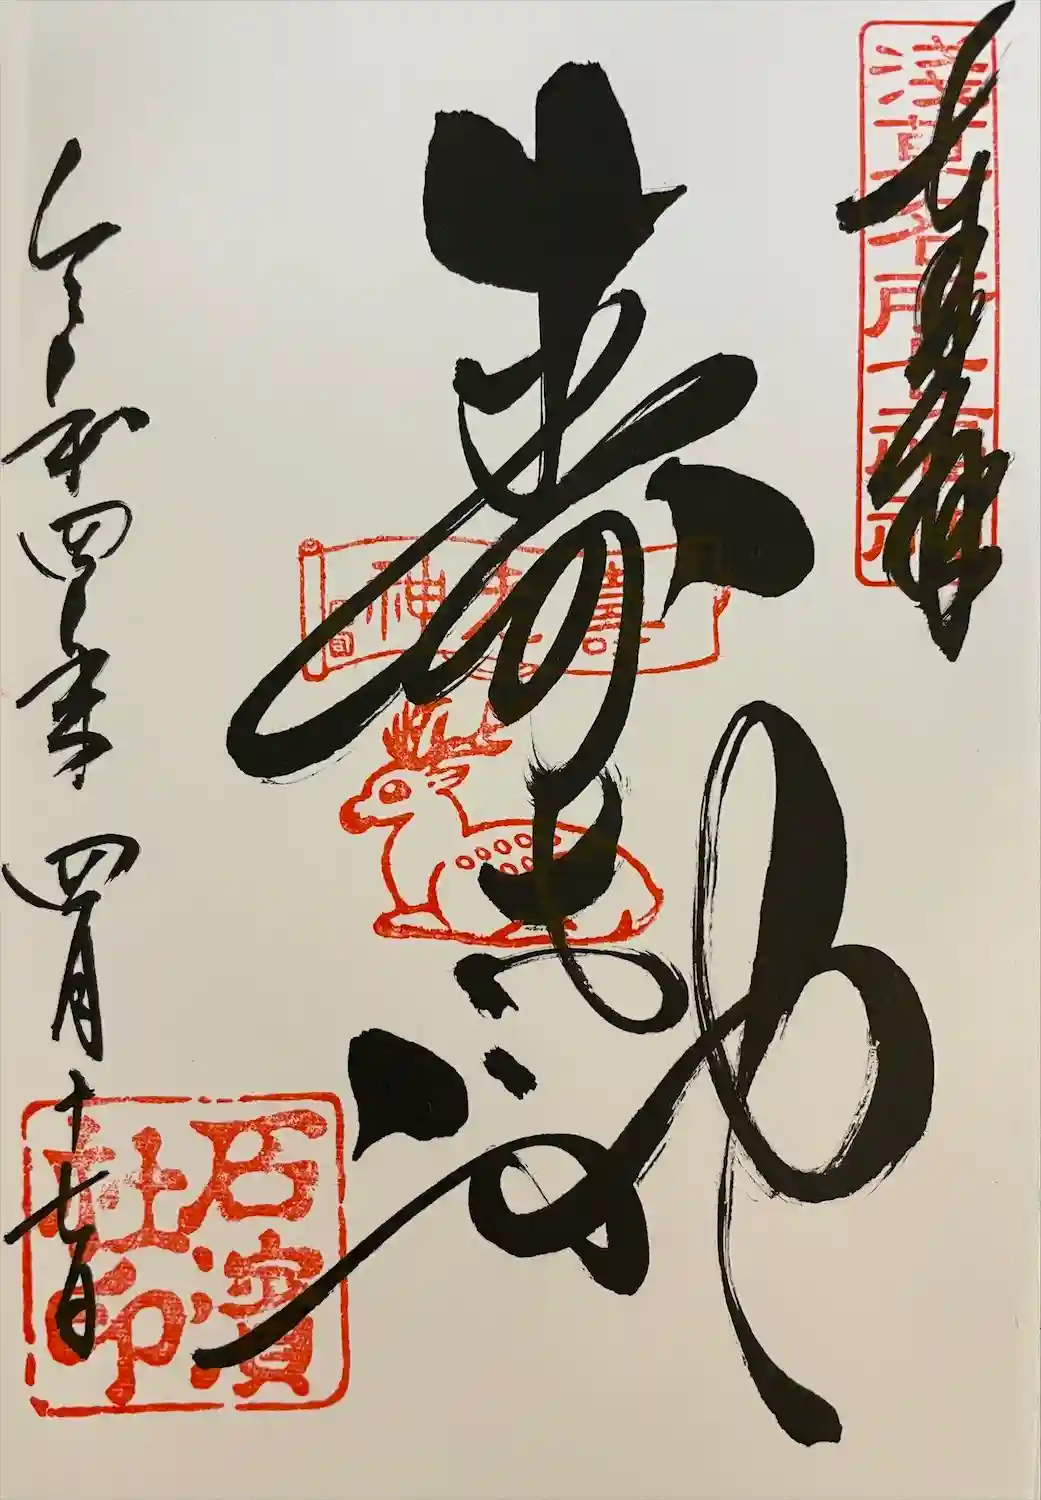 奉拝
浅草名所七福神
寿老神
壽老神
石濱
社印
令和四年四月十七日